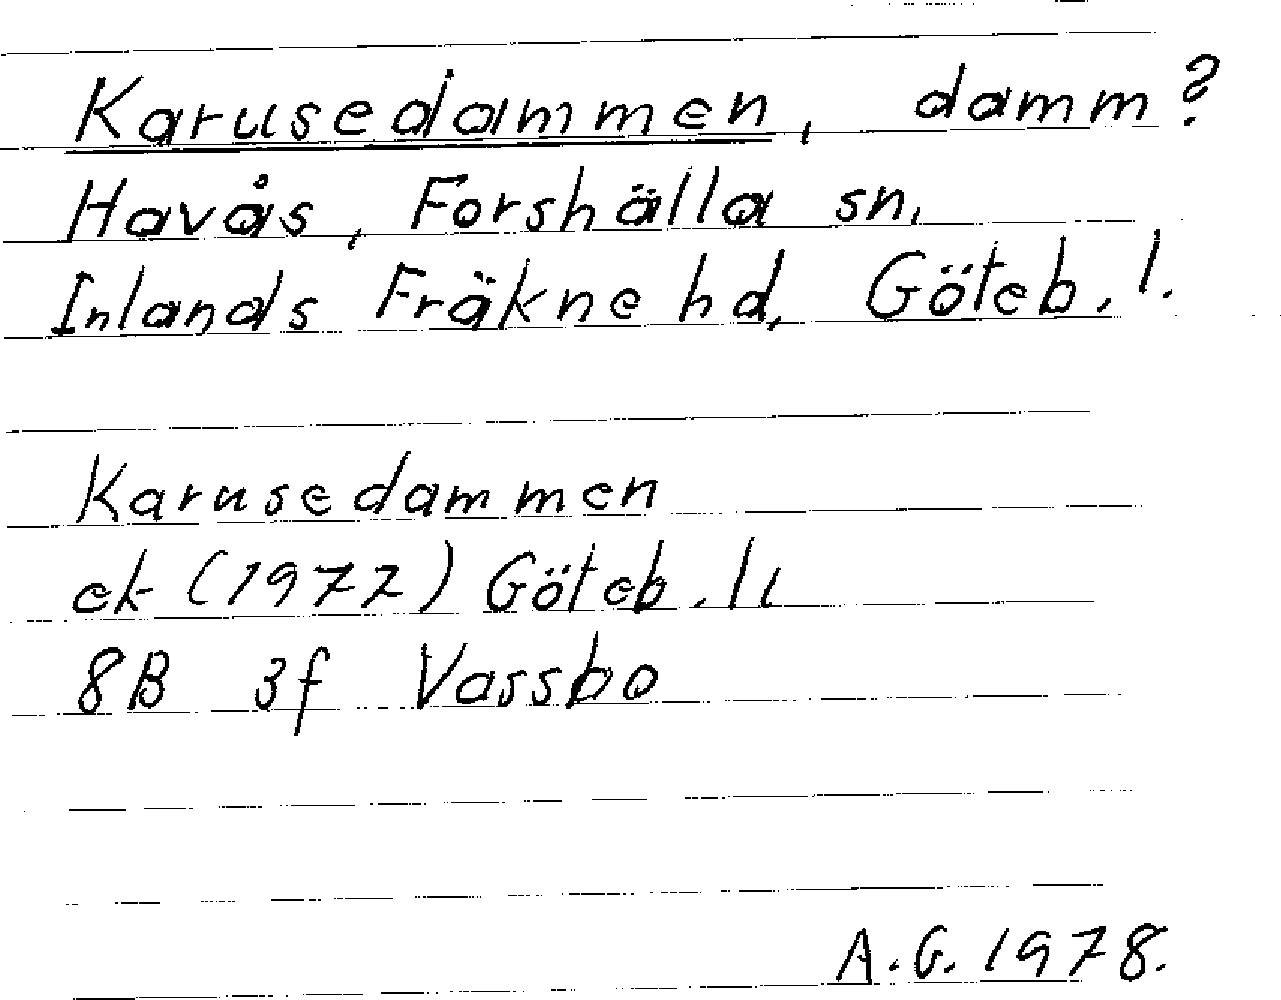 Karusedammen, damm?
Havås, Forshälla sn,
Inlands Fräkne hd, Göteb. l.
Karusedammen
ek (1977) Göteb. l.
8B 3f Vassbo
A.G. 1978.